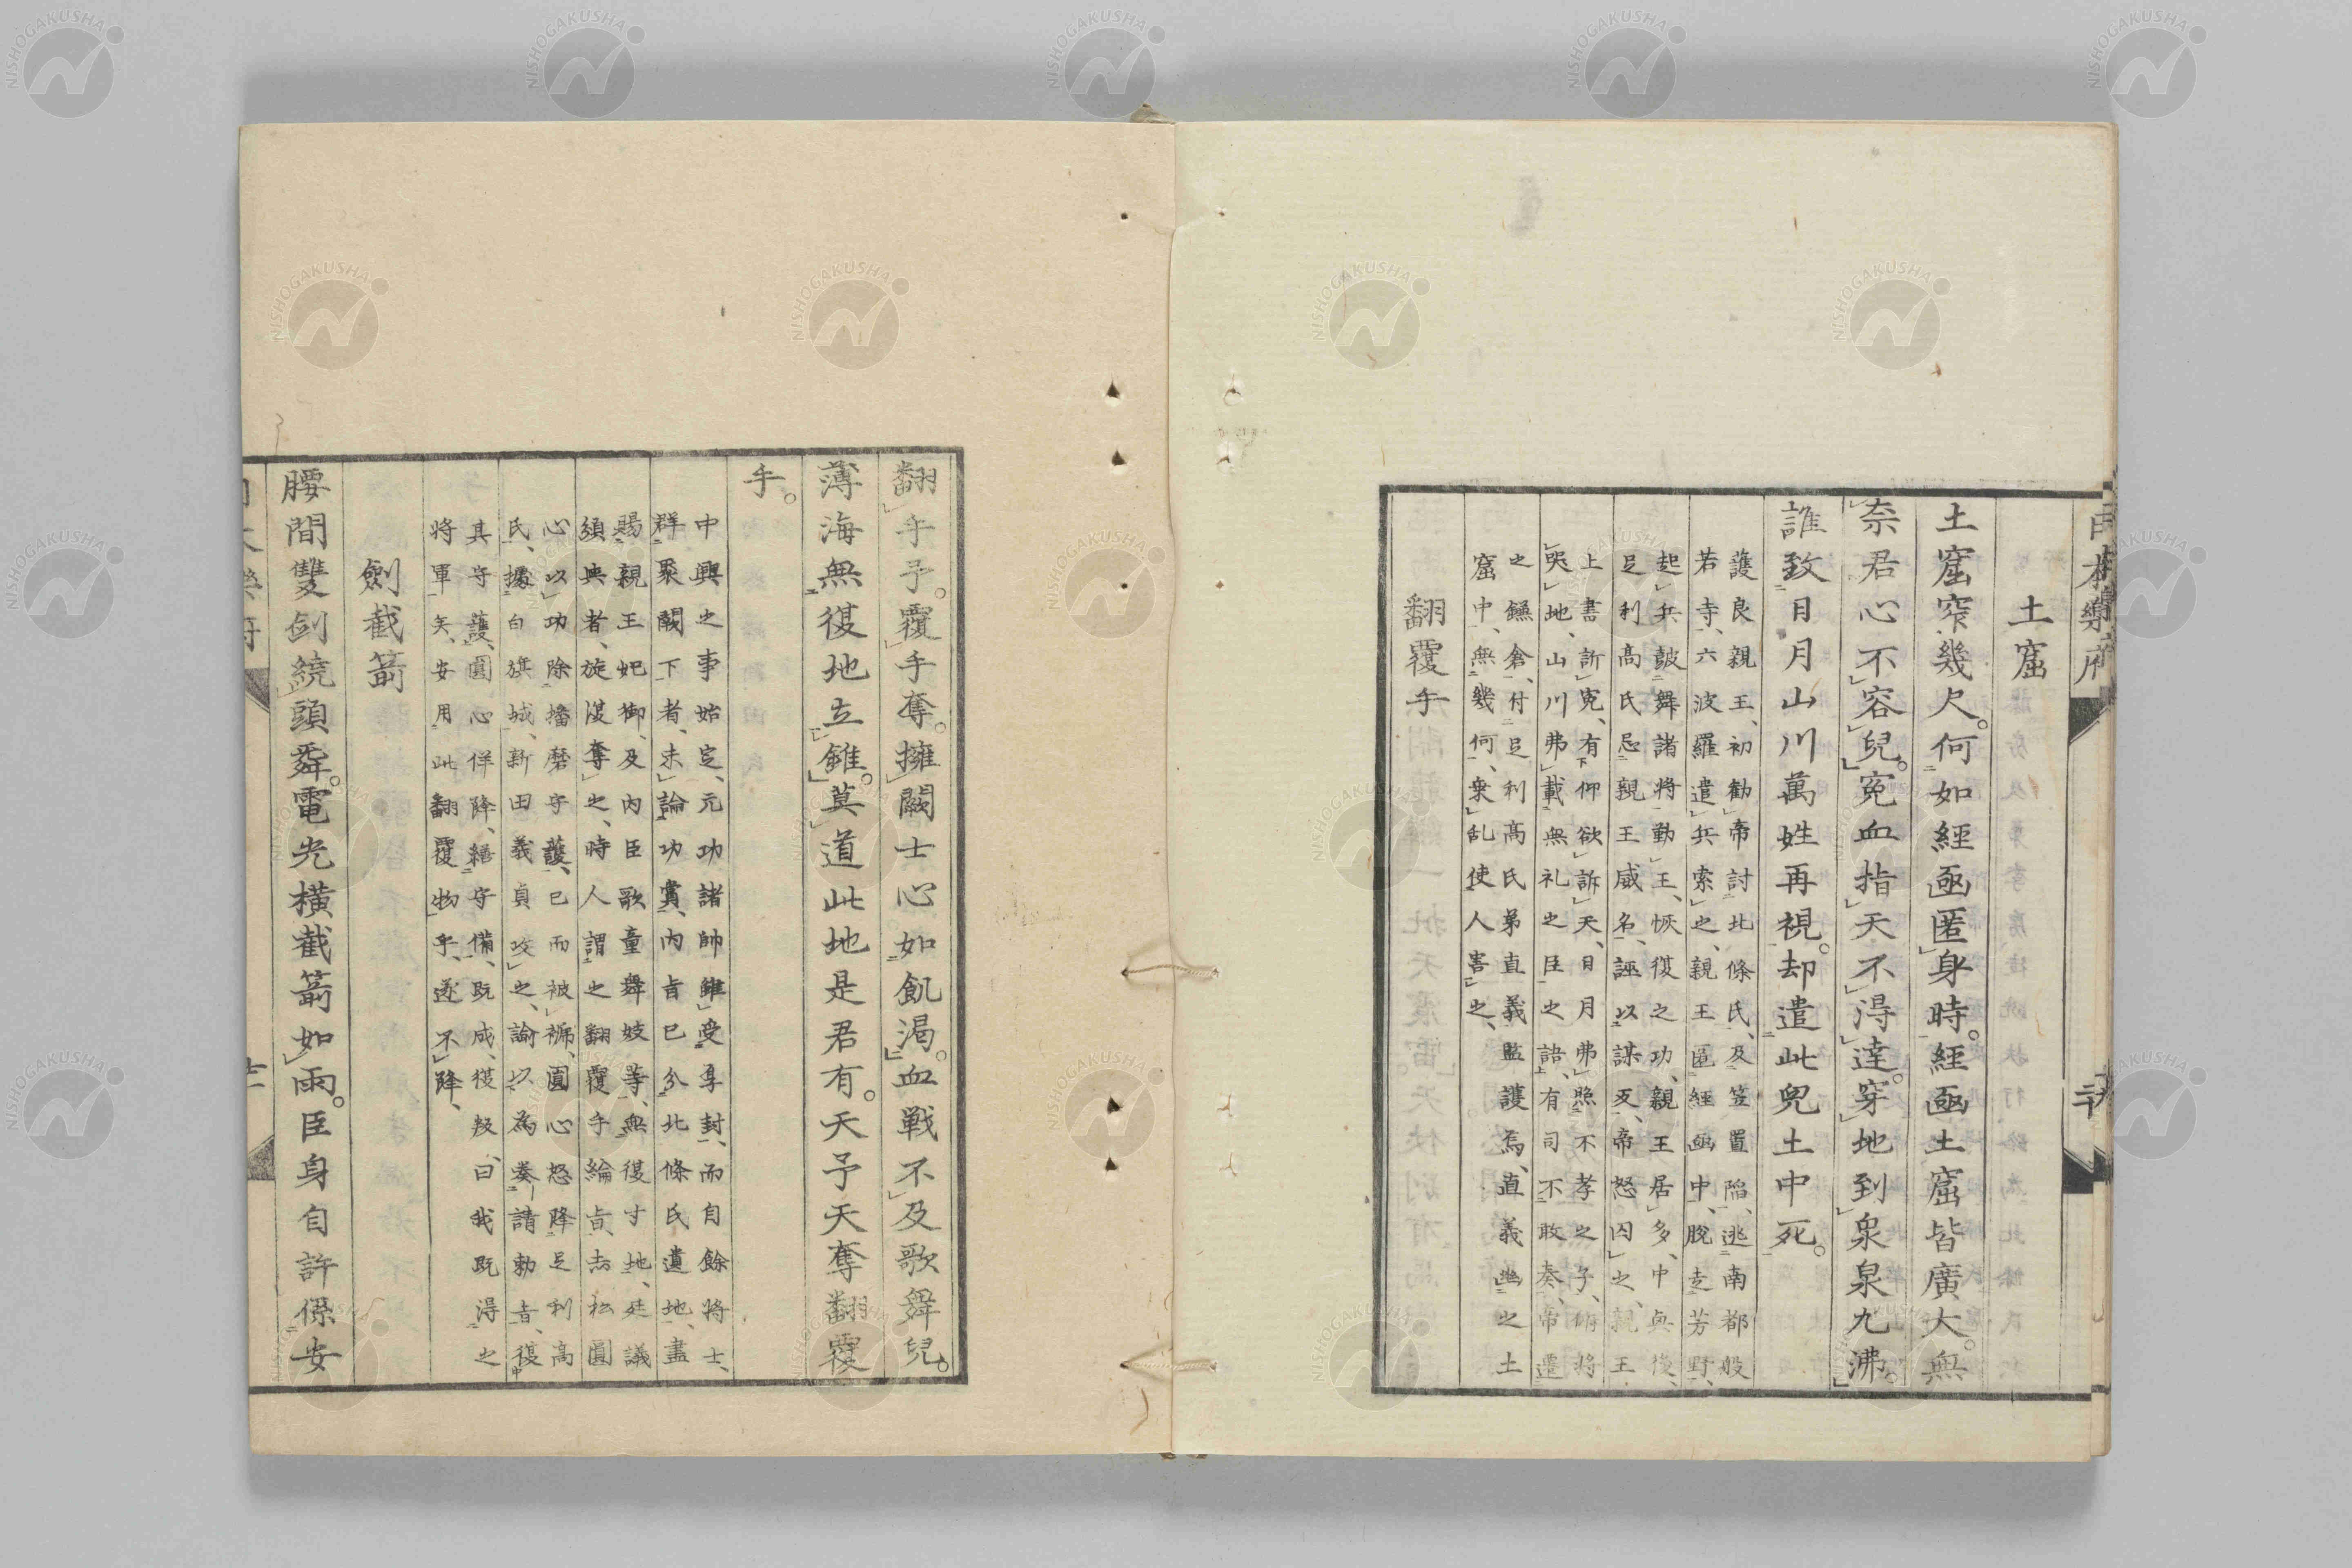 日本樂府
土窟
土窟窄幾尺。何如經凾匿身時。經凾土窟皆廣大。無
奈君心不容兒。寃血指天不得達。穿地到泉泉九沸。
誰致日月山川萬姓再視。却遣此兒土中死。
護良親王、初勸帝討北條氏、及笠置陷、逃南都般
若寺、六波羅遣兵索之、親王匿經凾中、脫走芳野、
起兵鼓舞諸將勤王、恢復之功、親王居多、中興後、
足利高氏忌親王威名、誣以謀反、帝怒囚之、親王
上書訴寃、有仰欲訴天、日月弗照不孝之子、俯將
哭地、山川弗載無礼之臣之語、有司不敢奏、帝遷
之鎌倉、付足利高氏弟直義監護焉、直義幽之土
窟中、無幾何、乘乱使人害之、
翻覆手
翻手予。覆手奪。擁闕士心如飢渴。血戰不及歌舞兒。
薄海無復地立錐。莫道此地是君有。天予天奪翻覆
手。
中興之事始定、元功諸帥雖受專封、而自餘將士、
群聚闕下者、未論功賞、內旨已分北條氏遺地、盡
賜親王妃御、及內臣歌童舞妓等、無復寸地、廷議
頒典者、旋復奪之、時人謂之翻覆手綸旨、赤松圓
心以功除播磨守護、已而被褫、圓心怒降足利高
氏、據白旗城、新田義貞攻之、諭以為奏請勅旨、復
其守護、圓心佯降、繕守備、既成、復叛、曰我既得之
將軍矣、安用此翻覆物乎、遂不降、
劍截箭
腰間雙劍繞頭舞。電光橫截箭如雨。臣身自許係安